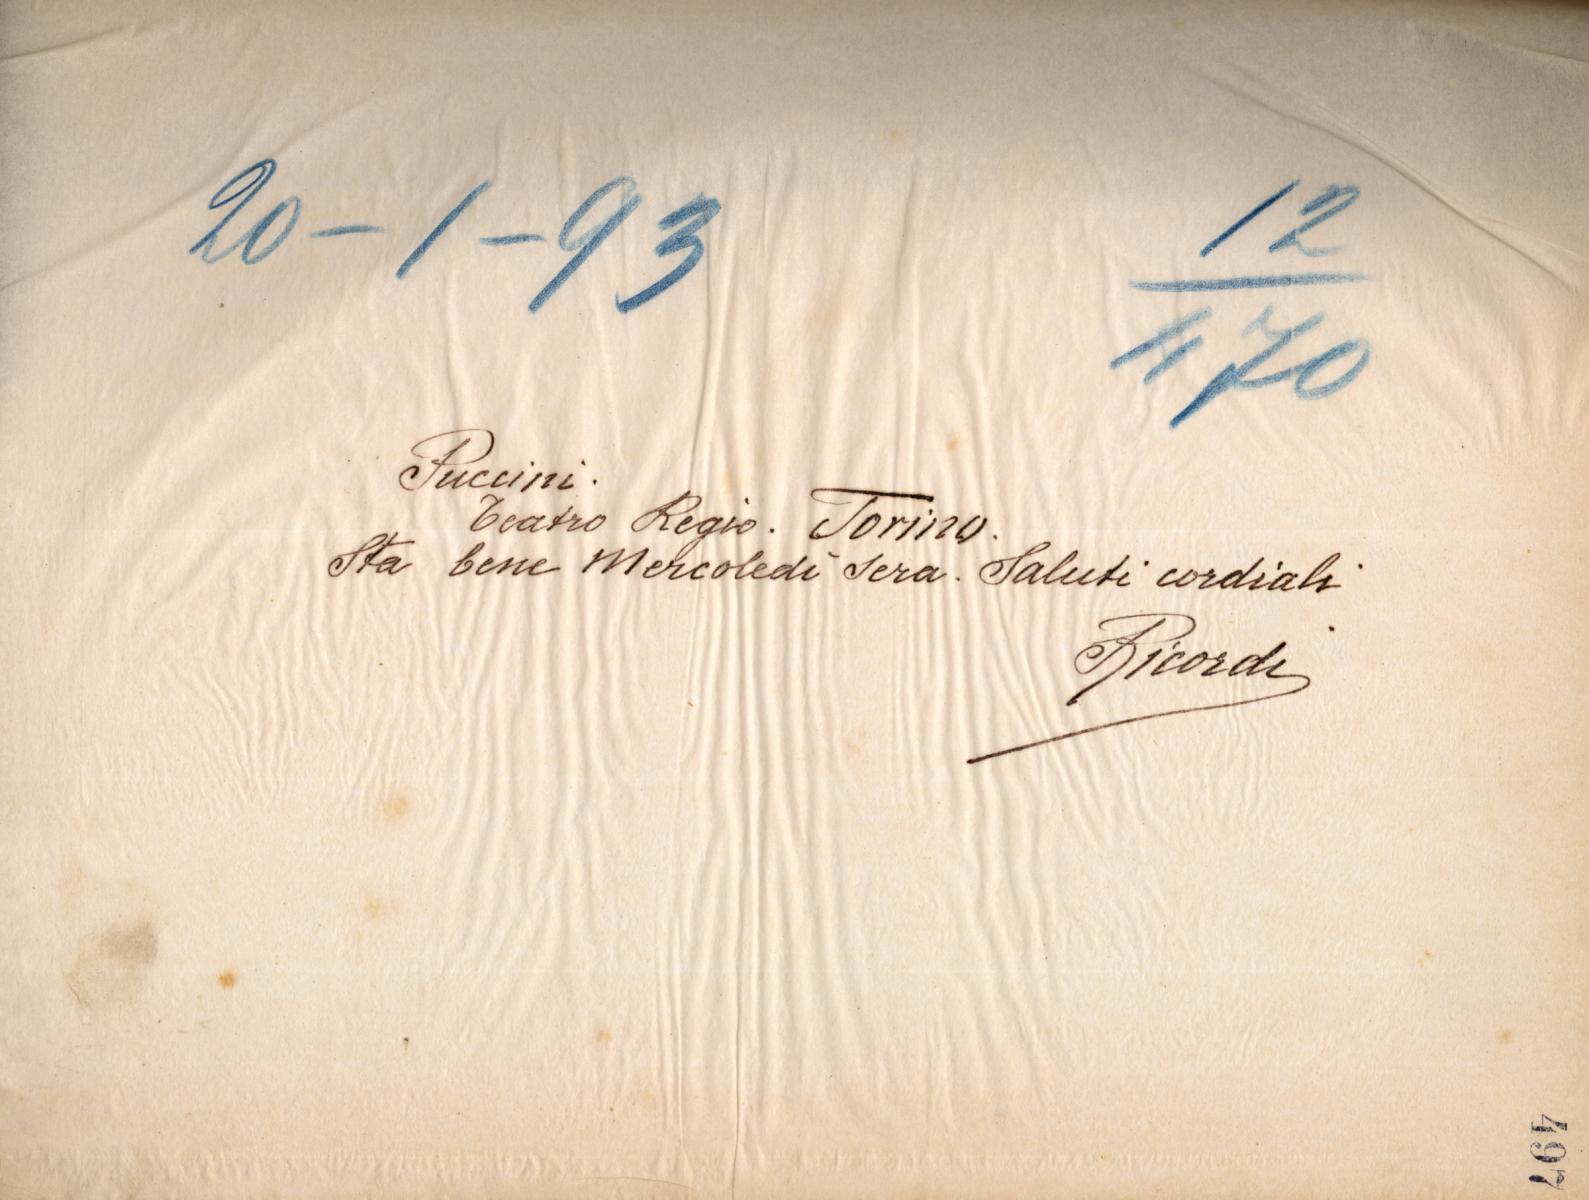 20-1-93
12
470
Puccini.
Teatro Regio. Torino.
Sta bene Mercoledì sera. Saluti cordiali
Ricordi
497